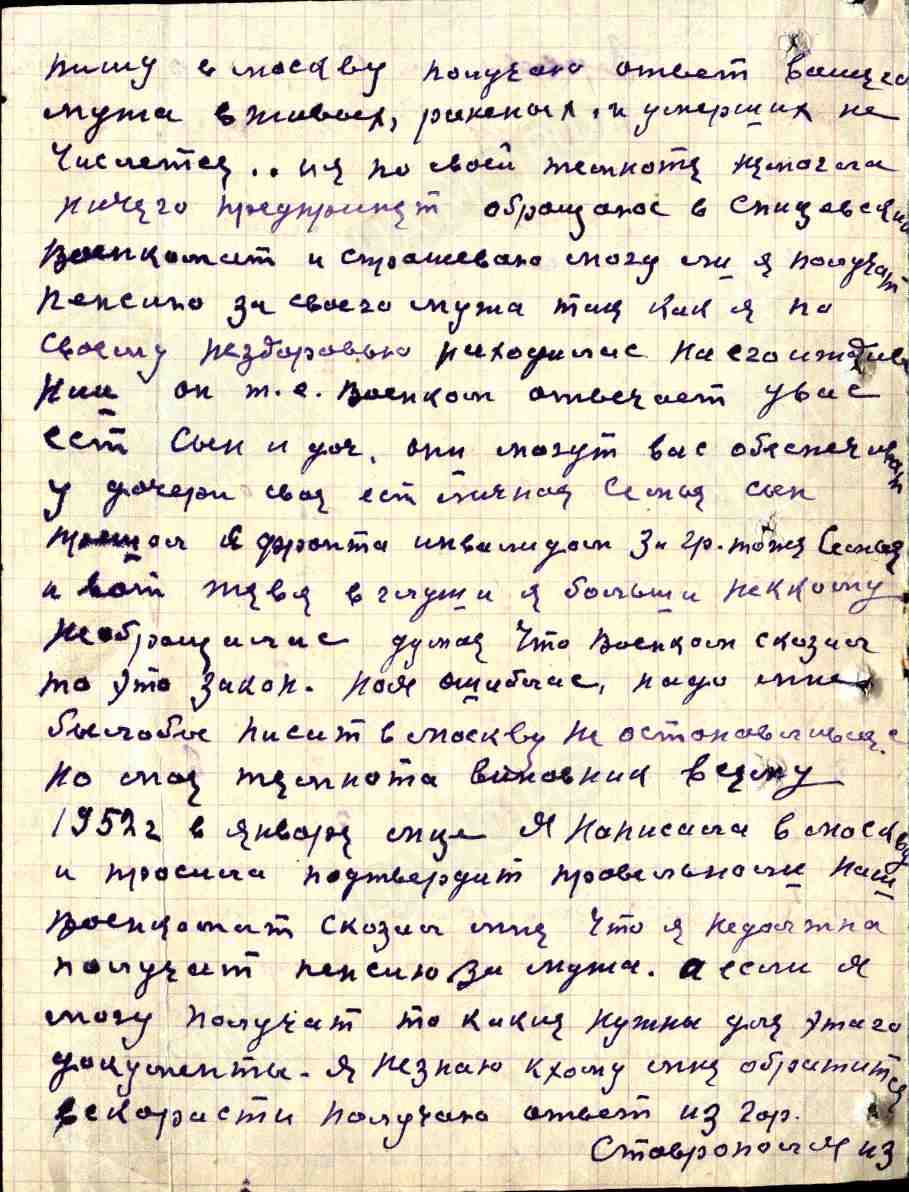 пишу в москву получаю ответ вашего
мужа вживых, раненых, и умерших не
числетея.. ия по своей темноте немогла
ничего предпринет обращаюс в Спицевский
военкомат и спрашеваю могу ли я получат
пенсию за своего мужа так как я по
своему нездоровью находилас на егоиждиве
нии он т.е. военком отвечает увас
ест сын и доч, они могут вас обеспечиват
у дочери своя ест личная семья сын
пришол с фронта инвалидом 3й гр. тоже семья
и вот живя вглуши я больши неккому
необращилас думая что военком сказал
то это закон. ноя ошиблас, надо мне
былобы писат в москву не остоновливаяс
но моя темнота виновник всему
1952г в январе м-це я написала в москву
и просила подтвердит провельноли наш
военкомат сказал мне что я недолжна
получит пенсию за мужа. а если я
могу получат то какие нужны для этаго
документы. я незнаю ккому мне обратится
вскорасти получаю ответ из гор.
Ставрополя из